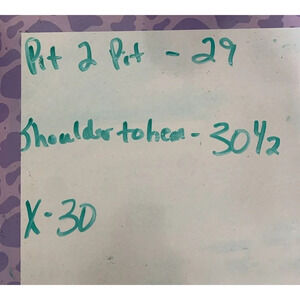 Pit 2 Pit - 29
Shoulder to hem - 30 1/2
X - 30